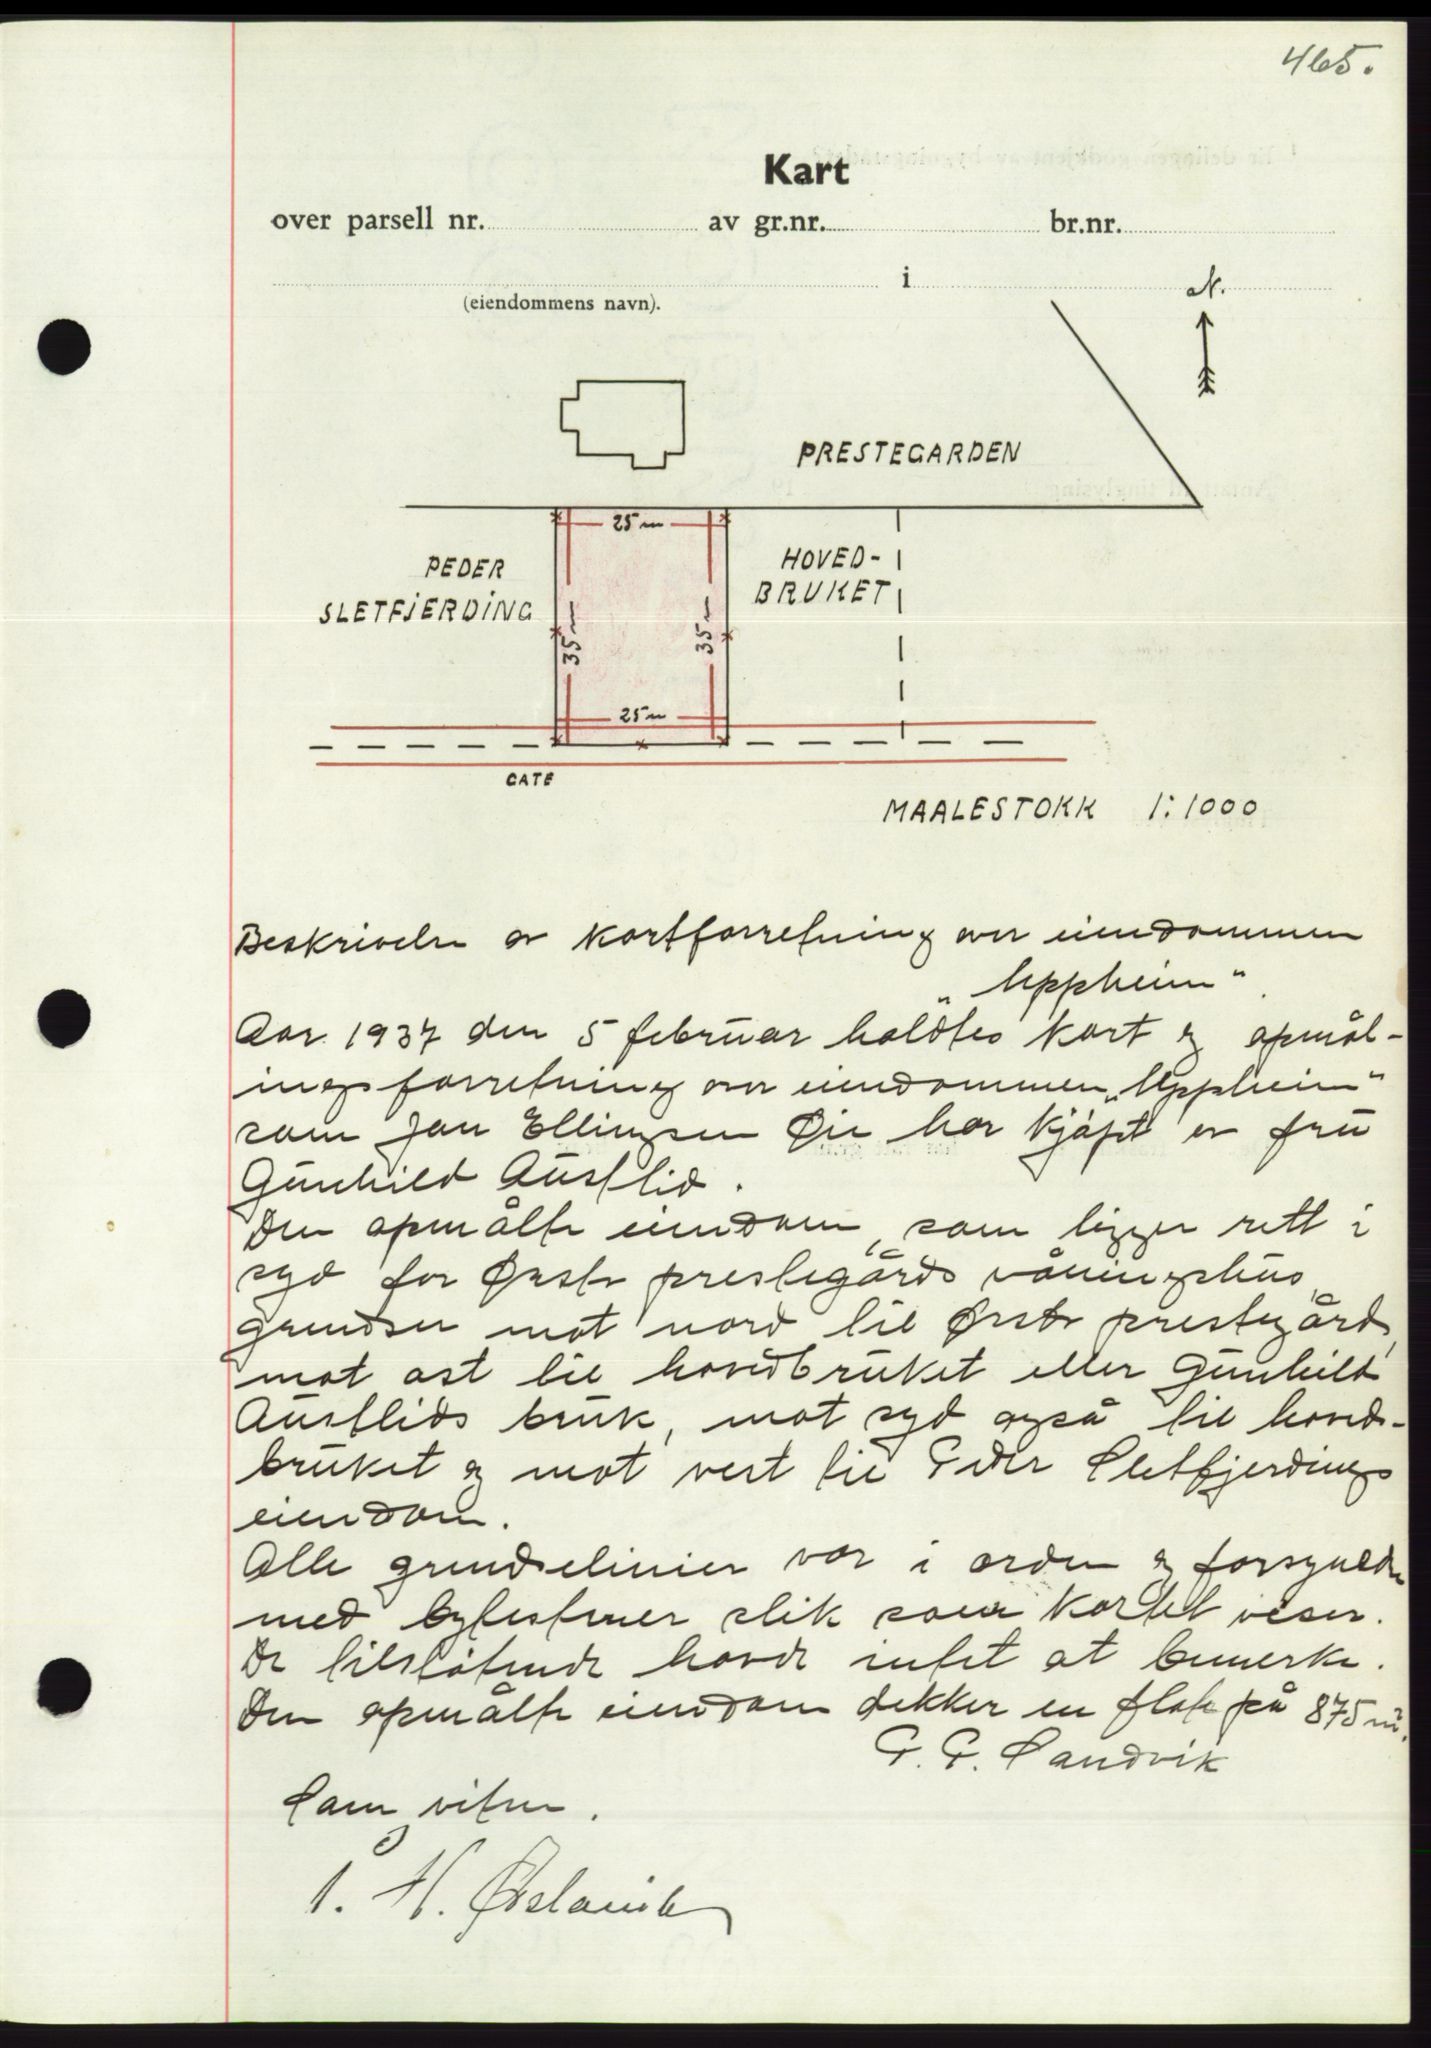 465.
Kart
over parsell nr. av gr.nr. br.nr.
i
(eiendommens navn).
N.
PRESTEGARDEN
25 m
PEDER
SLETFJERDING
HOVED-
BRUKET
35 m
35 m
25 m
GATE
MAALESTOKK 1:1000
Beskrivelse av kartforretning over eiendommen
"Uppheim".
Aar 1937 den 5 februar holdtes kart og opmål-
ingsforretning over eiendommen "Uppheim"
som Jon Ellingsen Øie har kjøpt av fru
Gunhild Austlid.
Den opmålte eiendom, som ligger rett i
syd for Ørsta prestegårds våningshus,
grendser mot nord til Ørsta prestegård,
mot ost til hovedbruket eller Gunhild
Austlids bruk, mot syd også til hoved-
bruket og mot vest til Peder Sletfjerdings
eiendom.
Alle grendselinier var i orden og forsynede
med bytestener slik som kartet viser.
De tilstøtende havde intet at bemerke.
Den opmålte eiendom dekker en flate på 875 m².
P. P. Sandvik
Som vitne.
H.